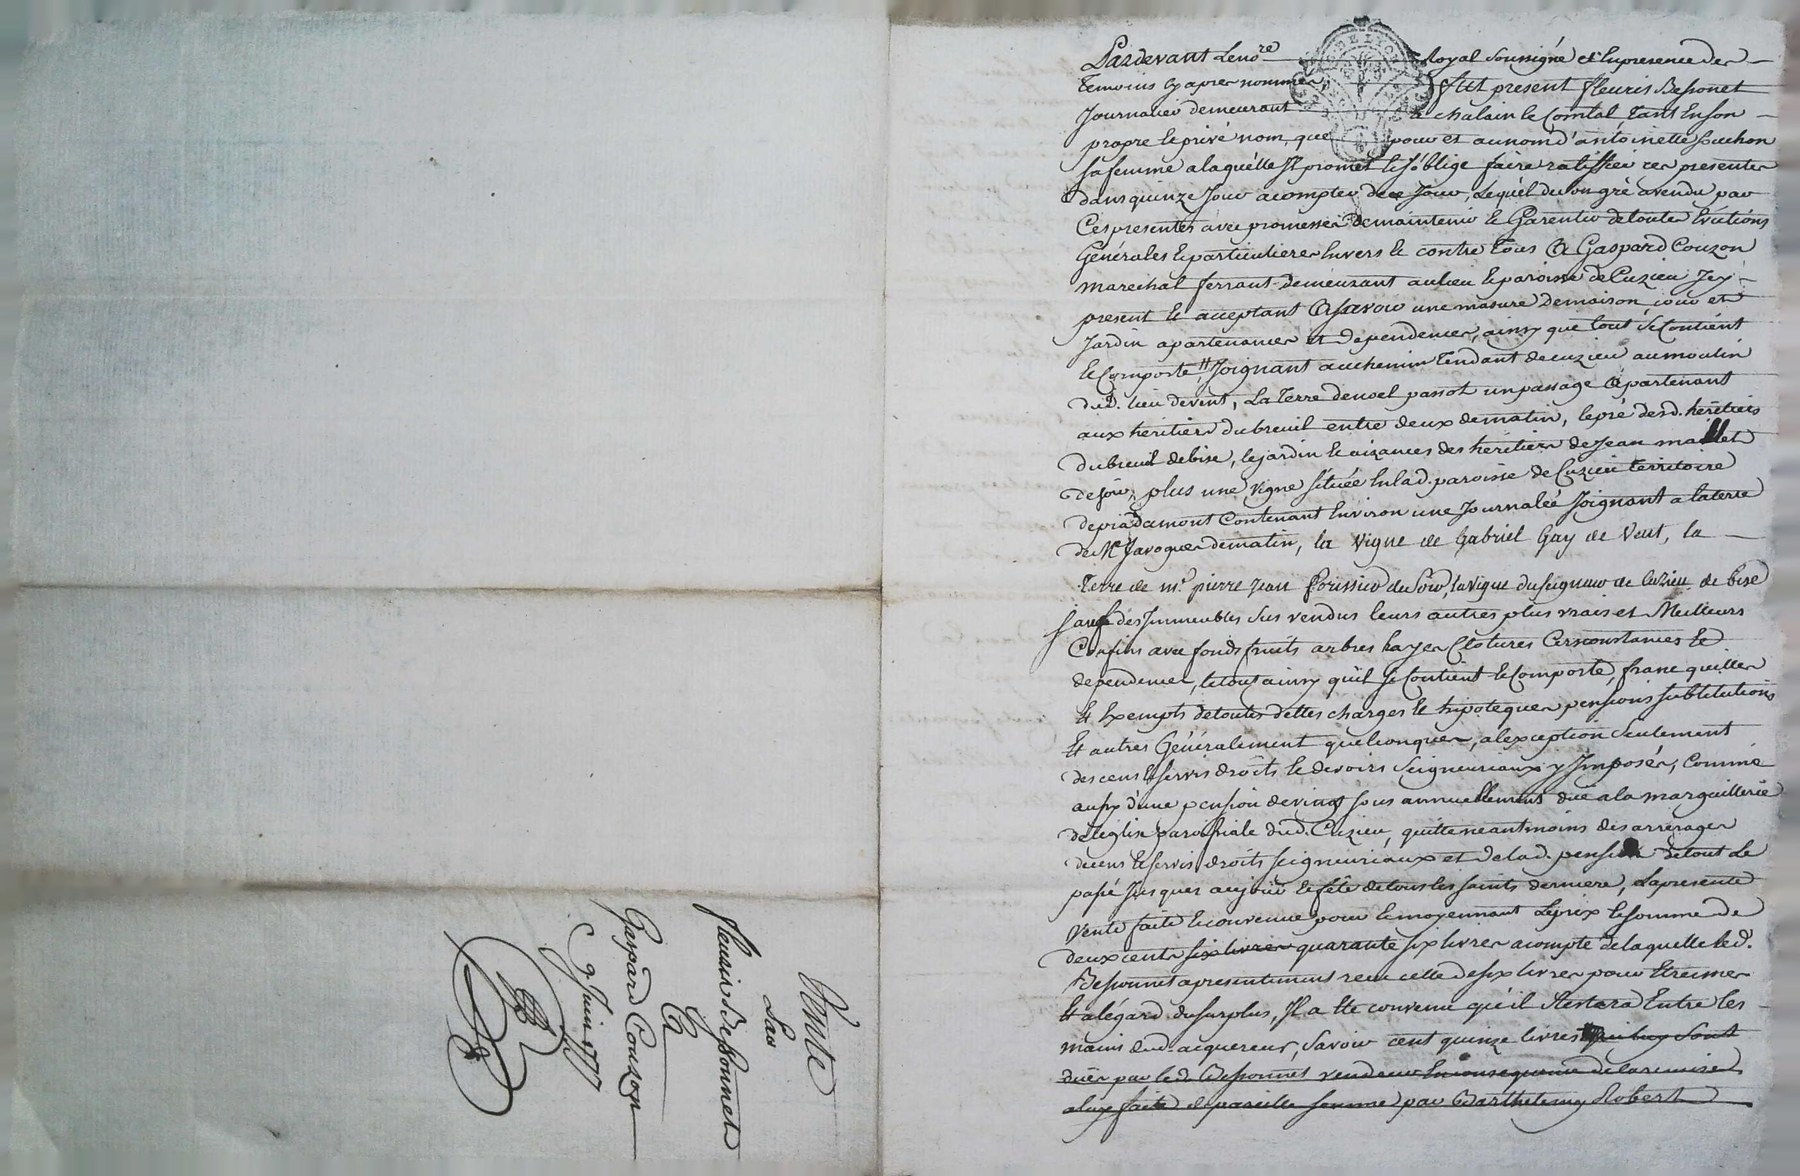 Vente
Par
fleuris Bessonnet
A
Gaspard Couzon
9 Juin 1777
Pardevant Le no.re Royal soussigné et En presence des
temoins Cy apres nommés fut present fleuris Bessonet
Journalier demeurant a chalain le Comtal, tant En son
propre Et privé nom, que pour et au nom d'antoinette souchon
sa femme a laquelle Il promet Et s'oblige faire ratiffier ces presentes
dans quinze Jour a compter de ce Jour, Lequel de son gré a vendu par
Ces presentes avec promesses de maintenir Et Garentir de toutes Evictions
Générales Et particulieres Envers Et contre tous A Gaspard Couzon
marechal ferrant demeurant au lieu Et paroisse de Cuzieu Icy
present Et acceptant A savoir une masure de maison cour et
Jardin apartenances Et dependences, ainsy que tout se Contient
Et Comporte, Joignant au chemin tendant de cuzieu au moulin
dud. lieu de vent, La terre de noel passot un passage apartenant
aux heritiers dubreuil entre deux de matin, le pré desd. héritiers
dubreuil de bise, le jardin Et aizances des heritiers de Jean maillet
de soir, plus une vigne située En lad. paroisse de Cuzieu territoire
de Contenant Environ une Journalée Joignant a la terre
de Javogues de matin, la vigne de Gabriel Gay de Vent, la
terre de m.r pierre Jean forissier de soir, la vigne du seigneur de Cuzieu de bise
sauf des Immeubles sus vendus leurs autres plus vrais et Meilleurs
Confins avec fonds fruits arbres hayes Clotures Cirsconstances Et
dependences, le tout ainsy qu'il se Contient Et Comporte, franc quittes
Et Exempts de toutes dettes charges Et hipoteques pensions substitutions
Et autres Généralement quelconques, a l'exception seulement
des cens Et servis droits Et devoirs seigneuriaux y Imposés, Comme
aussy d'une pension de vingt sous annuellement düe a la marguillerie
de l'eglise paroissiale dud. Cuzieu, quitte neantmoins des arrerages
de cens Et servis droits seigneuriaux et de lad. pension de tout le
passé Jusques aujour Et fête de tous les saints derniere, La presente
vente faite Et convenue pour Et moyennant Le prix Et somme de
deux cents six livres quarante six livres a compte de laquelle led.
Bessonnet a presentement recu celle de six livres pour Etreines
Et a l'égard du surplus, Il a Eté convenu qu'il Restera Entre les
mains dud. acquereur, savoir cent quinze livres qui luy sont
dües par led. Bessonnet vendeur En consequence de la remise
a luy faite de pareille somme par Barthelemy Robert